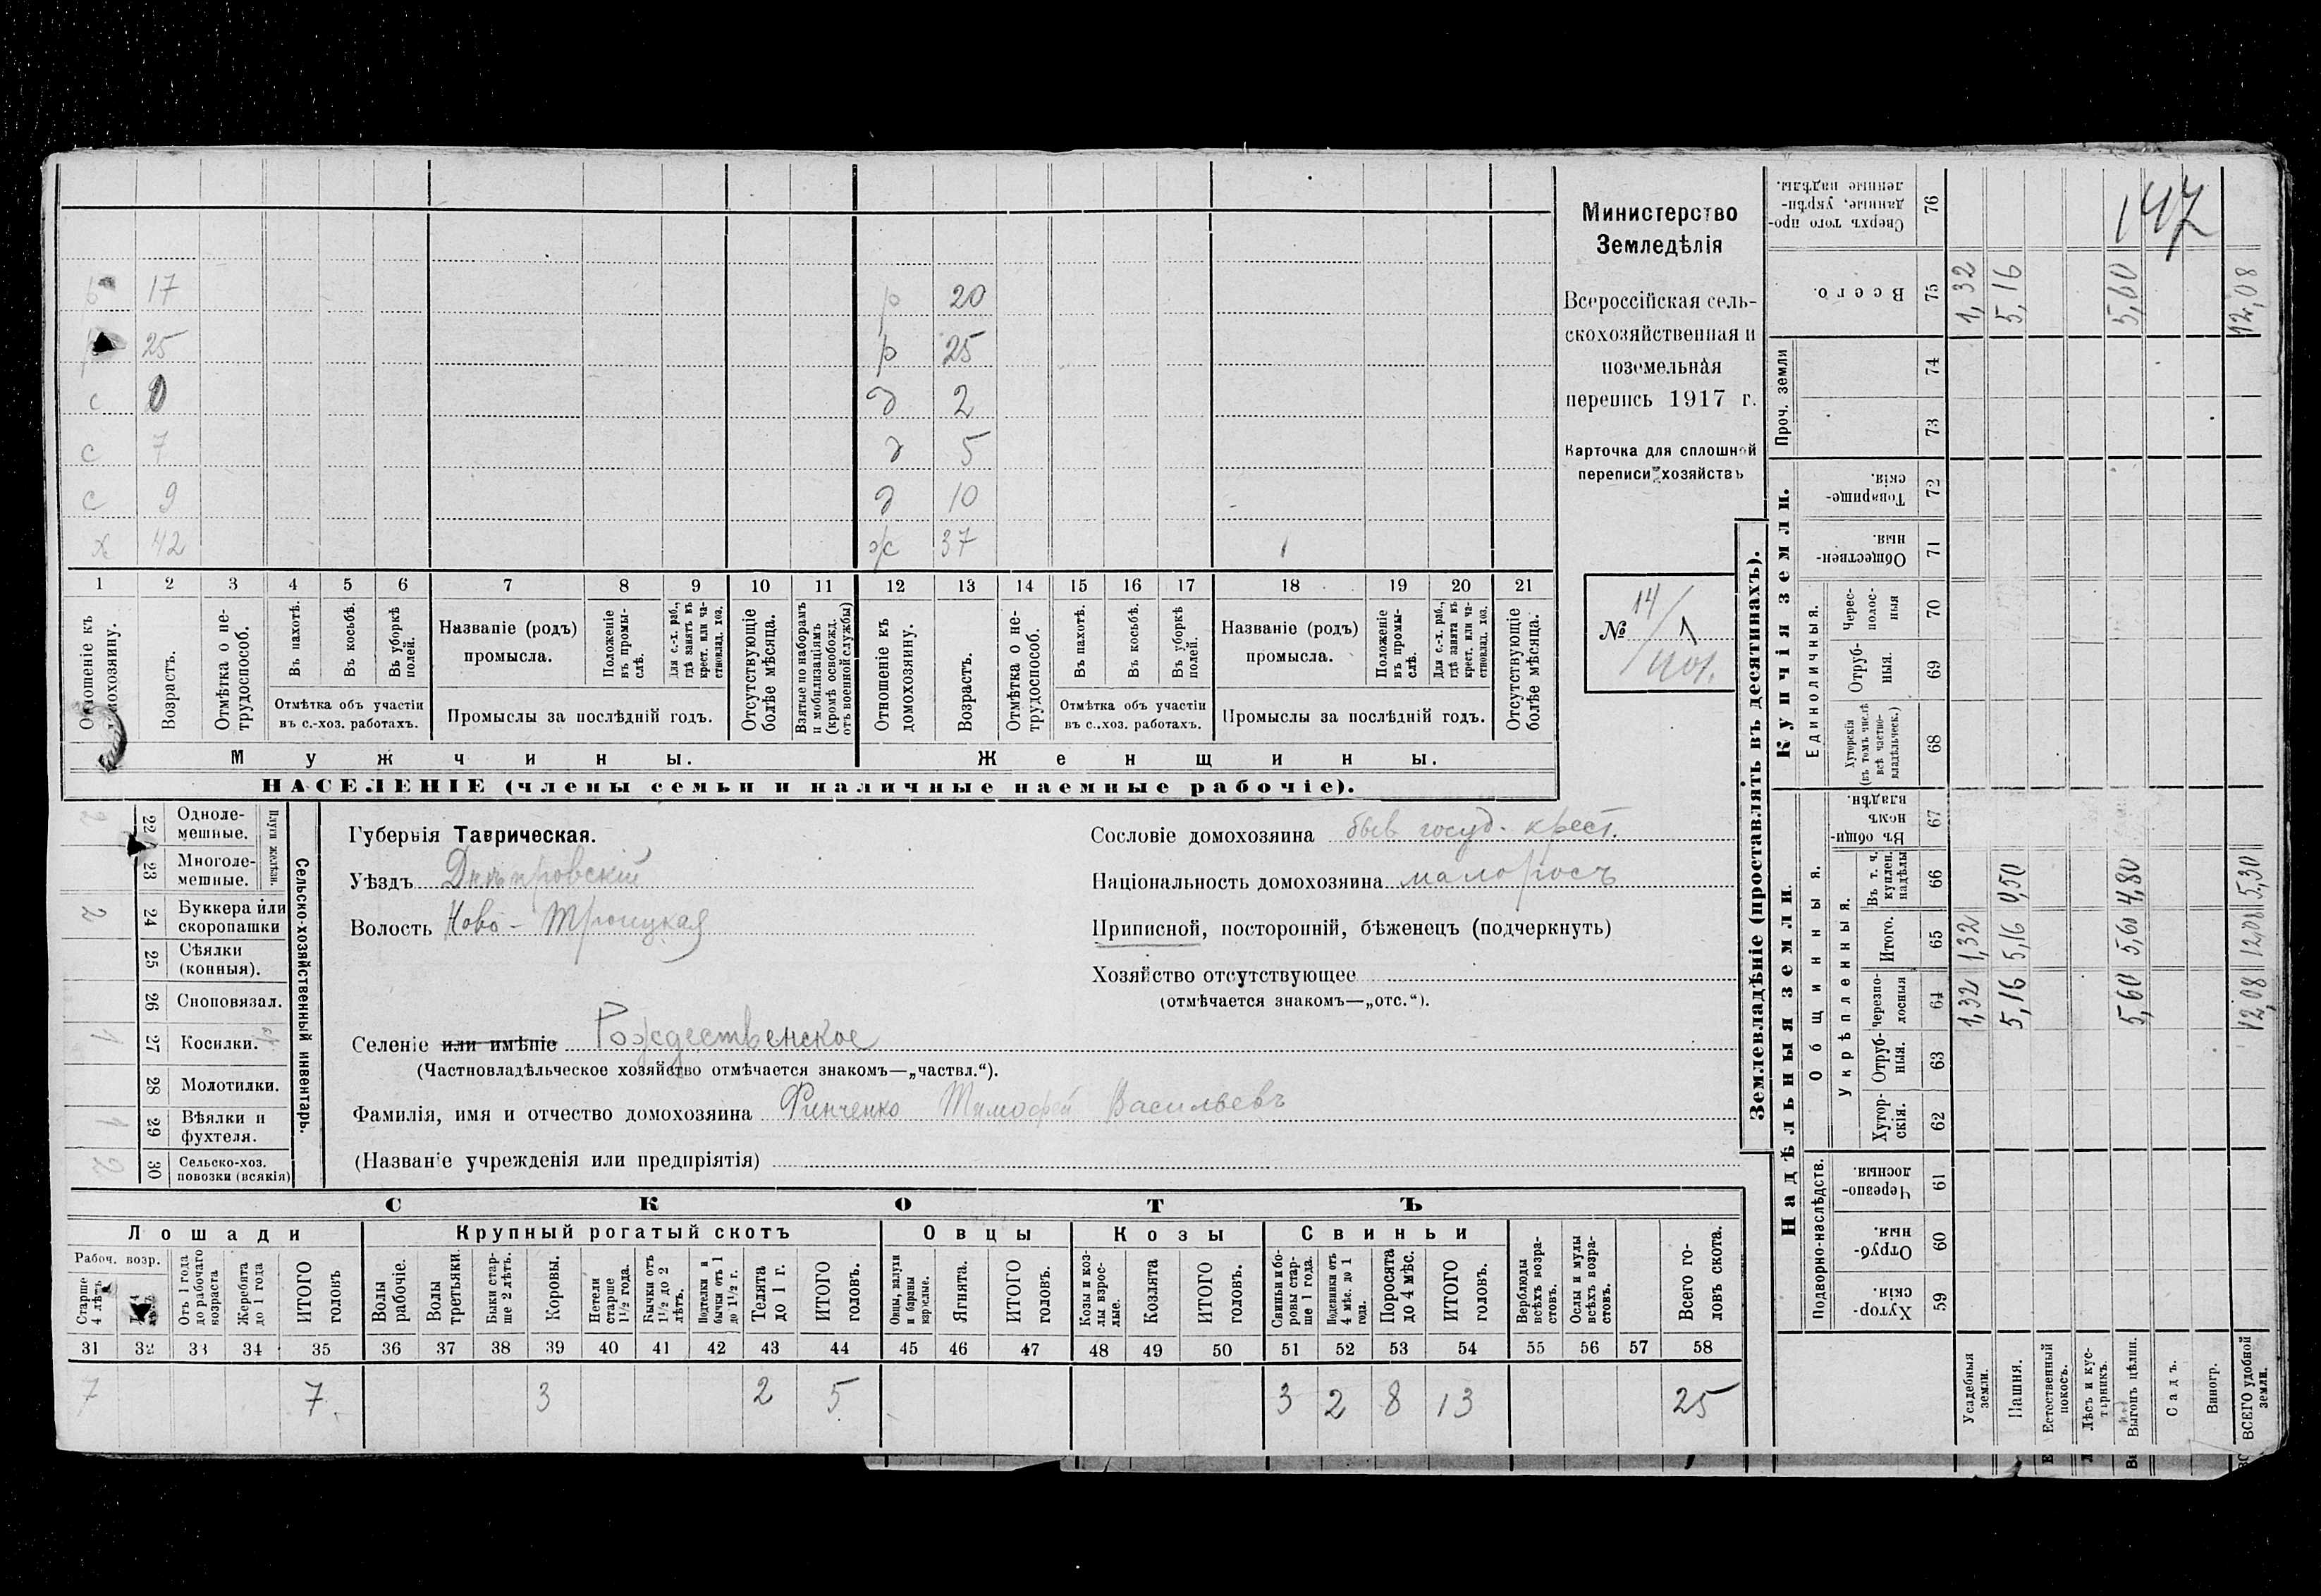 р 17 р 20
25 р 25
с 0 д 2
с 7 д 5
с 9 д 10
х 42 ж 37
1 2 3 4 5 6 7 8 9 10 11 12 13 14 15 16 17 18 19 20 21
Отношеніе къ домохозяину.
Возрастъ.
Отмѣтка о не-
трудоспособ.
Въ пахотѣ.
Въ косьбѣ.
Въ уборкѣ
полей.
Отмѣтка объ участіи
въ с.-хоз. работахъ.
Названіе (родъ)
промысла.
Положеніе
въ промы-
слѣ.
Для с.-х. раб.,
гдѣ занятъ въ
крест. или ча-
стновлад. хоз.
Промыслы за послѣдній годъ.
Отсутствующіе
болѣе мѣсяца.
Взятые по наборамъ
и мобилизаціямъ
(кромѣ освобожд.
отъ военной службы)
Отношеніе къ
домохозяину.
Возрастъ.
Отмѣтка о не-
трудоспособ.
Въ пахотѣ.
Въ косьбѣ.
Въ уборкѣ
полей.
Отмѣтка объ участіи
въ с.-хоз. работахъ.
Названіе (родъ)
промысла.
Положеніе
въ промы-
слѣ.
Для с.-х. раб.,
гдѣ занята въ
крест. или ча-
стновлад. хоз.
Промыслы за послѣдній годъ.
Отсутствующіе
болѣе мѣсяца.
Мужчины.
Женщины.
НАСЕЛЕНІЕ (члены семьи и наличные наемные рабочіе).
Министерство
Земледѣлія
Всероссійская сель-
скохозяйственная и
поземельная
перепись 1917 г.
Карточка для сплошной
переписи хозяйствъ
14
№ 1
Сельско-хозяйственный инвентарь.
Плуги желѣзн.
2 22 Одноле-
мешные.
23 Многоле-
мешные.
2 24 Буккера или
скоропашки
25 Сѣялки
(конныя).
26 Сноповязал.
1 27 Косилки.
28 Молотилки.
1 29 Вѣялки и
фухтеля.
2 30 Сельско-хоз.
повозки (всякія)
Губернія Таврическая.
Уѣздъ Днѣпровскій
Волость Ново-Троицкая
Сословіе домохозяина быв госуд. крест.
Національность домохозяина малоросъ
Приписной, посторонній, бѣженецъ (подчеркнуть)
Хозяйство отсутствующее
(отмѣчается знакомъ—„отс.“).
Селеніе или имѣніе Рождественское
(Частновладѣльческое хозяйство отмѣчается знакомъ—„частвл.“).
Фамилія, имя и отчество домохозяина Финченко Тимофей Васильевъ
(Названіе учрежденія или предпріятія)
СКОТЪ
Лошади Крупный рогатый скотъ Овцы Козы Свиньи
Рабоч. возр.
Старше
4 лѣтъ
Отъ 1 года
до рабочаго
возраста
Жеребята
до 1 года
ИТОГО
головъ
Волы
рабочіе.
Волы
третьяки.
Быки стар-
ше 2 лѣтъ.
Коровы.
Нетели
старше
1½ года.
Бычки отъ
1½ до 2
лѣтъ.
Подтелки и
бычки отъ 1
до 1½ г.
Телята
до 1 г.
ИТОГО
головъ.
Овцы, валухи
и бараны
взрослые.
Ягнята.
ИТОГО
головъ.
Козы и коз-
лы взрос-
лые.
Козлята
ИТОГО
головъ.
Свиньи и бо-
ровы стар-
ше 1 года.
Подсвинки отъ
4 мѣс. до 1
года.
Поросята
до 4 мѣс.
ИТОГО
головъ.
Верблюды
всѣхъ возра-
стовъ.
Ослы и мулы
всѣхъ возра-
стовъ.
Всего го-
ловъ скота.
31 32 33 34 35 36 37 38 39 40 41 42 43 44 45 46 47 48 49 50 51 52 53 54 55 56 57 58
7 7 3 2 5 3 2 8 13 25
Землевладѣніе (проставлять въ десятинахъ).
Надѣльныя земли
Купчія земли.
Проч. земли
Подворно-наслѣдств.
Общинныя.
Укрѣпленныя.
Единоличныя.
Хутор-
скія. 59
Отруб-
ныя. 60
Черезпо-
лосныя. 61
Хутор-
скія. 62
Отруб-
ныя. 63
Черезпо-
лосныя 64
Итого. 65
Въ т. ч.
куплен.
надѣлы 66
Въ общи-
номъ
владѣн. 67
Хуторскія
(въ томъ числѣ
всѣ частно-
владѣльческ.) 68
Отруб-
ныя. 69
Черес-
полос-
ныя 70
Обществен-
ныя. 71
Товарище-
скія. 72
73
74
Всего. 75
Сверхъ того про-
данные, укрѣп-
ленные надѣлы. 76
147
Усадебныя
земли. 1,32 1,32 1,32
Пашня. 5,16 5,16 0,50 5,16
Естественный
покосъ.
Лѣсъ и кус-
тарникъ.
Выгонъ цѣлин. 5,60 5,60 4,80 5,60
Садъ.
Виногр.
ВСЕГО удобной
земли. 12,08 12,08 5,30 12,08